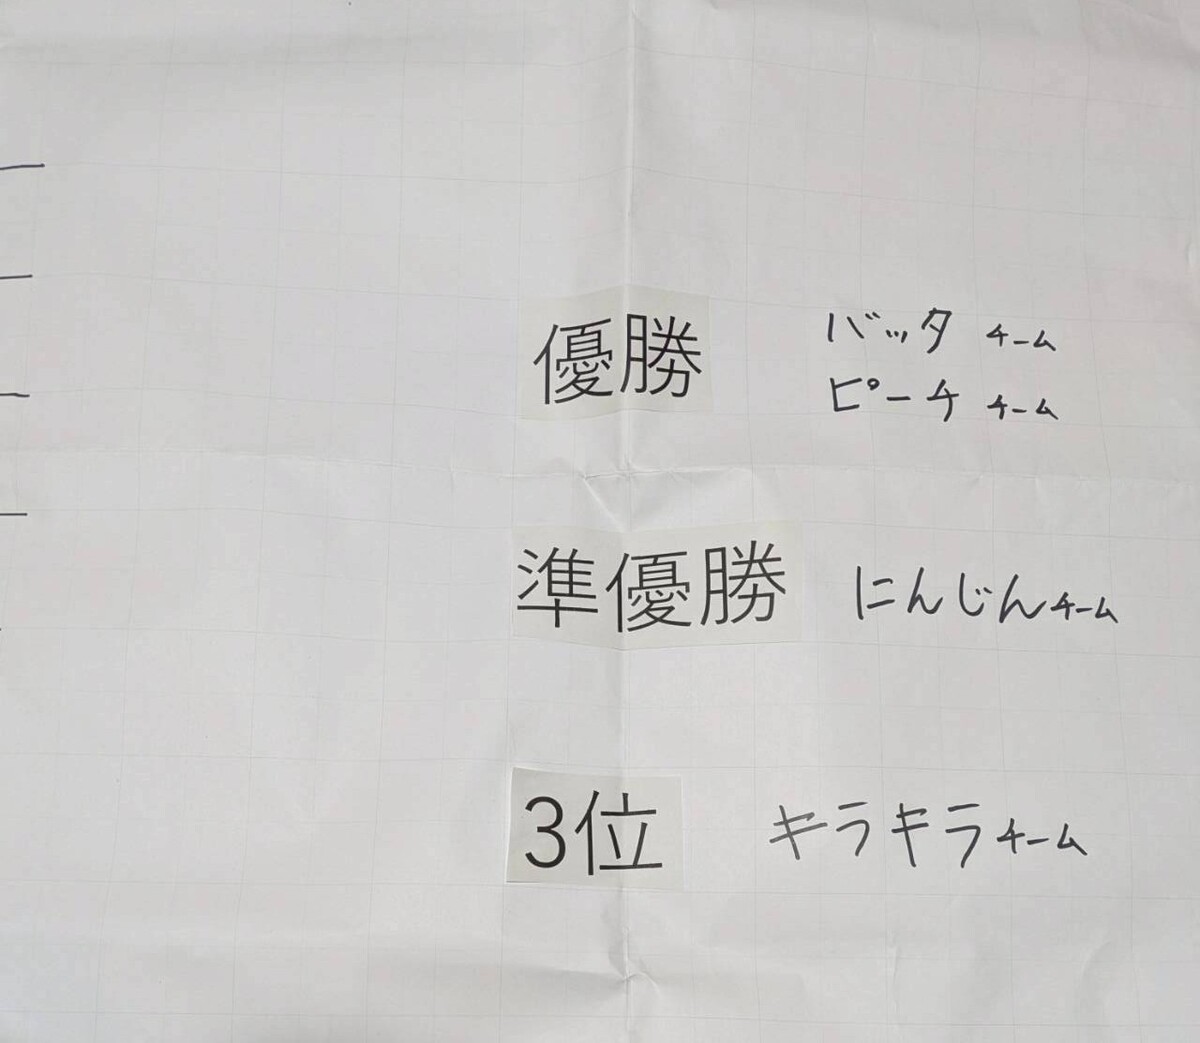 優勝 バッタ チーム
ピーチ チーム
準優勝 にんじんチーム
3位 キラキラチーム